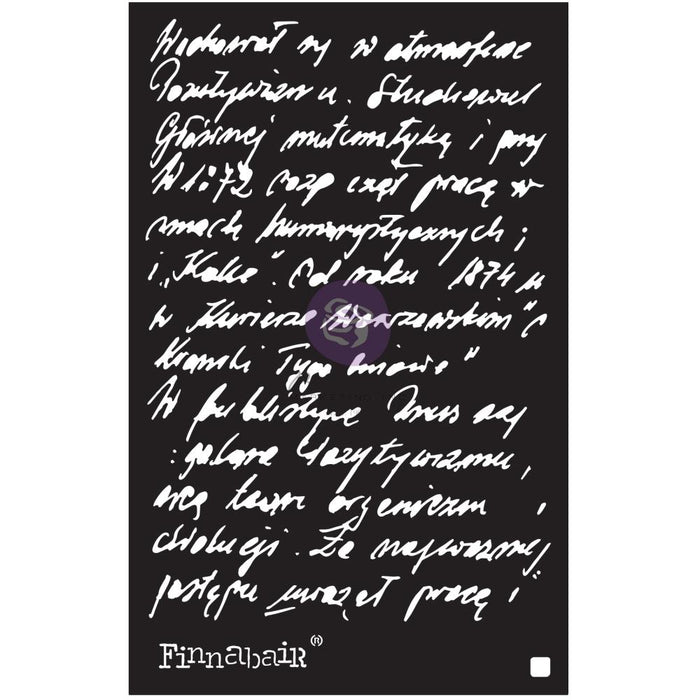 Wychował się w atmosferze
Pozytywizmu. Studiował
Głównej matematykę i przy
W 1872 rozp czął pracę w
smach humorystycznych i
i „Kolce”. Od roku 1874 u
w Kurierze Warszawskim” c
Kronski Tygodniowe”
W publistyce Prus
Pozytywizmu,
organizm i
ewolucji. Za najważniej
postępu uważał pracę i
Finnabair (R)